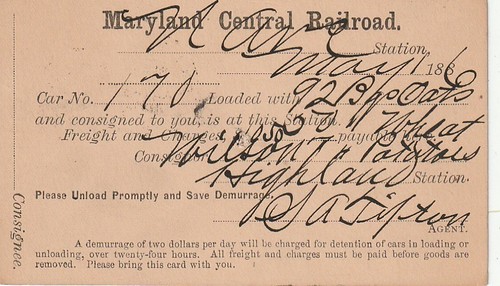 Maryland Central Railroad.
Station,
May 1 1886
Car No. 170 Loaded with 92 Bgs Oats
and consigned to you, is at this Station. Wheat
Freight and Charges payable by
Consignor Wilson Tr Potatoes
Highland Station.
Please Unload Promptly and Save Demurrage.
S A Tipton
AGENT.
A demurrage of two dollars per day will be charged for detention of cars in loading or
unloading, over twenty-four hours. All freight and charges must be paid before goods
are removed. Please bring this card with you.
Consignee.